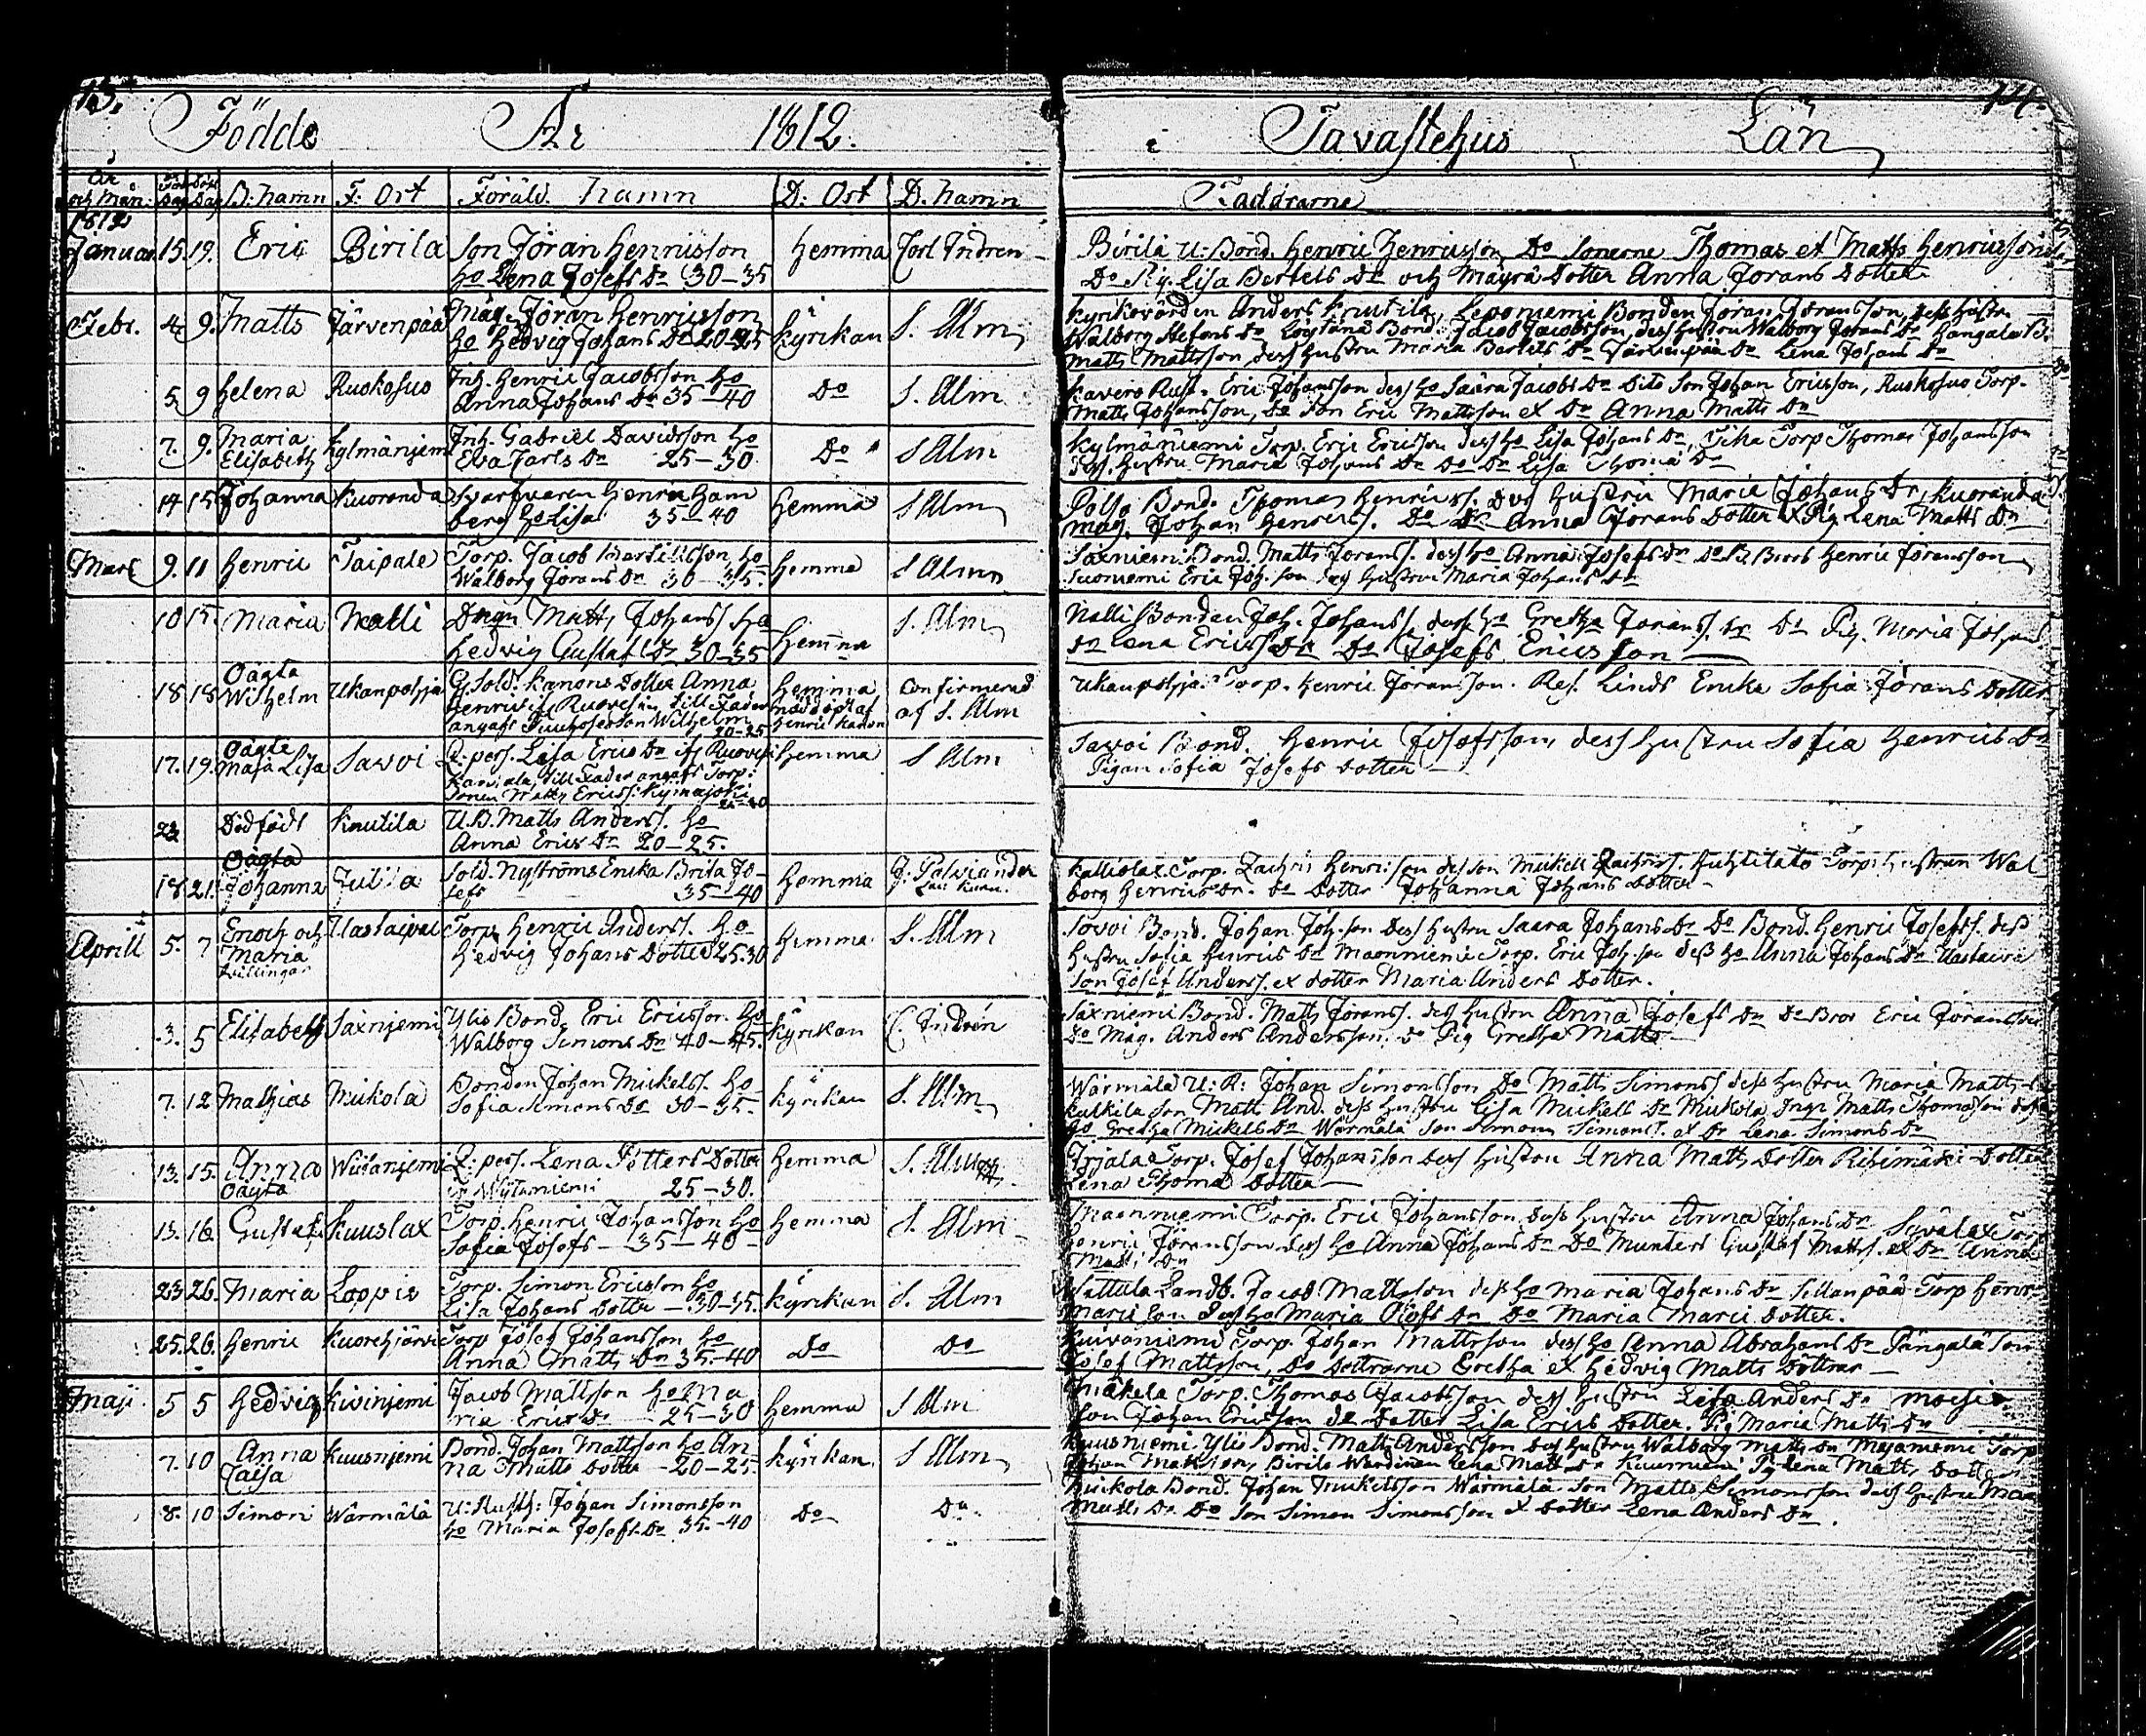 13.
Födde År 1812.
År och Mån. Föd. Dag Döp. Dag B: namn F. Ort Föräld. namn D: Ort D. namn
1812
Januar. 15. 19. Eric Birila Son Jöran Henricsson Hemma Carl Indren
Ho Lena Josefs Dr 30-35
Febr. 4. 9. Matts Järvenpää Måg. Jöran Henricsson Kyrkan S. Alm
Ho Hedvig Johans Dr 20-25
5. 9 Helena Ruokosuo Inh. Henric Jacobsson Ho Do S. Alm
Anna Johans Dr 35-40
7. 9. Maria Elisabeth Kylmäniemi Inh. Gabriel Davidsson Ho Do S Alm
Eva Carls Dr 25-30.
14 15 Johanna Kuoranda Skarfvaren Henric Ham Hemma S Alm
berg Ho Lisa 35-40
Mars 9. 11 Henric Taipale Torp. Jacob Bertillsson Ho Hemma S Alm
Walborg Jörans Dr 30-35.
10 15. Maria Nalli Drgn Matts Johanss Ho Hemma S. Alm
Hedvig Gustaf Dr 30-35
18 18 Oägta Wilhelm Ukanpohja G. Sold. Kanons Dotter Anna Hemma Confirmerad
Henrics if. Ruovesi, till Fader nöddöpt af af S. Alm
angafs Wilhelm 20-25 Henric Kanon
17. 19. Oägta Maja Lisa Savoi Q. pers. Lisa Erics Dr if. Ruovesi Hemma S Alm
till Fader angafs Torp.
Sonen Matts Ericss. 
23 Dödfödt Knutila U.B. Matts Anderss. Ho
Anna Erics Dr 20-25.
18 21. Oägta Johanna Jutila Sold. Nyströms Enka Brita Jo- Hemma J. Palviander
sefs 35-40
Aprill 5. 7 Enoch och Maria tvillingar Uastaipal Torp. Henric Anderss. Ho Hemma S. Alm
Hedvig Johans Dotter 25-30
3. 5 Elisabeth Saxniemi Ylis Bond. Eric Ericsson Ho Kyrkan C. Indrén
Walborg Simons Dr 40-45.
7. 12 Mathias Mickola Bonden Johan Mickelss. Ho Kyrkan S. Alm
Sofia Simons Dr 30-35.
13. 15. Anna Oägta Wiitaniemi Q: pers. Lena Petters Dotter Hemma S. Alm
25-30.
13. 16 Gustaf Kuuslax Torp. Henric Johansson Ho Hemma S. Alm
Sofia Josefs - 35-40
23 26. Maria Loppis Torp. Simon Ericsson Ho Kyrkan S. Alm
Lisa Johans Dotter - 30-35.
25. 26. Henric Kuorehjärvi Torp Josef Johansson Ho Do Do
Anna Matts Dr 35-40
Maji 5 5 Hedvig Kivinjemi Jacob Mattsson Ho Ma Hemma S Alm
ria Erics Dr - 25-30
7. 10 Anna Caisa Kuusnjemi Bond. Johan Mattsson Ho An Kyrkan S Alm
na Matts Dotter - 20-25
8. 10 Simon Wärmälä U: Rusth: Johan Simonsson Do Do
Ho Maria Josefs Dr 35-40
14.
i Tavastehus Län
Faddrarne
Birila U: Bond. Henric Henricsson, Do Sönerne Thomas et Matts Henricssöner
Do Pig. Lisa Bertels Dr och Mäyrä Dotter Anna Jörans Dotter
Kyrkovärden Anders Knutila, Leponiemi Bonden Jöran Jöransson, dess Hustru
Walborg Stefans Dr Löytänä Bond. Jacob Jacobsson, dess Hustru Walborg Jörans Dr Hangala B.
Matts Mattsson, dess Hustru Maria Bertels Dr Järvenpää Dr Lena Johans Dr
Kavero Rust. Eric Johansson dess Ho Saara Jacobs Dr Dito Son Johan Ericsson, Ruokosuo Torp.
Matts Johansson, Do Son Eric Mattsson et Dr Anna Matts Dr
Kylmäniemi Torp. Eric Ericsson dess Ho Lisa Johans Dr, Torp Thomas Johansson
dess Hustru Maria Johans Dr Do Dr Lisa Thoma Dr
Polso Bond. Thomas Henricss. dess Hustru Maria Johans Dr, Kuoranda
Måg. Johan Henricss. Do Dr Anna Jörans Dotter & Pig Lena Matts Dr
Saxniemi Bond. Matts Jöranss. dess Ho Anna Josefs Dr Do B. Brod. Henric Jöransson
Suoniemi Eric Joh. son dess Hustru Maria Johans Dr
Nalli Bonden Joh. Johanss. dess Ho Gretha Joranss. Dr Do Pig. Maria Johans
Dr Lena Ericss Dr Do Josefs Ericsson
Ukanpohja Torp. Henric Jöransson. Ref. Linds Enka Sofia Jörans Dotter
Savoi Bond. Henric Josefsson, dess Hustru Sofia Henrics Dr
Pigan Sofia Josefs Dotter
Kalliolax Torp. Zachris Henricsson dess son Mickell Zachriss. Torp: hustrun Wal
borg Henrics Dr. Do Dotter Johanna Johans Dotter
Savoi Bond. Johan Joh. son dess Hustru Saara Johans Dr Do Bond. Henric Josefss. dess
Hustru Sofia Henrics Dr Maanniemi Torp. Eric Joh. son dess Ho Anna Johans Dr
Son Josef Anderss. et Dotter Maria Anders Dotter.
Saxniemi Bond. Matts Joranss. dess Hustru Anna Josefs Dr Do Bror Eric Joransson
Do Måg. Anders Andersson. Do Pig Gretha Matts
Wärmälä U: R: Johan Simonsson Do Matts Simonss dess Hustru Maria Matts
Kulkila Son Matts And. dess Hustru Lisa Mickels Dr Mickola Matts Thomasson dess
Ho Gretha Mickels Dr Wärmälä Son Simon Simonss. et Dr Lena Simons Dr
Torp. Josef Johansson dess Hustru Anna Matts Dotter Riihimäki Dotter
Lena Thoma Dotter
Maanniemi Torp. Eric Johansson dess Hustru Anna Johans Dr Torp
Henric Jöransson dess Ho Anna Johans Dr Do Gustaf Matts. et Dr Anna
Matts Dr
Wittula Landb. Jacob Mattsson dess Ho Maria Johans Dr Sillanpää Torp Henr.
Marci Son dess Ho Maria Olofs Dr Do Maria Marci Dotter.
Torp. Johan Mattsson dess Ho Anna Abrahams Dr Pängälä Son
Josef Mattsson, Do Dottrarne Gretha et Hedvig Matts Döttrar
Mäkelä Torp. Thomas Jacobsson dess Hustru Lisa Anders Dr
Son Johan Ericsson Do Dotter Lisa Erics Dotter. Pig Maria Matts Dr
Kuusniemi Ylis Bond. Matts Andersson dess Hustru Walborg Matts Dr Torp
Johan Mattsson, Birila Wärdinnan Lena Matts Dr Kuusniemi Pig Lena Matts Dotter
Mickola Bond. Johan Mickelsson Wärmälä Son Matts Simonsson dess Hustru Maria
Matts Dr Do Son Simon Simonsson et Dotter Lena Anders Dr.